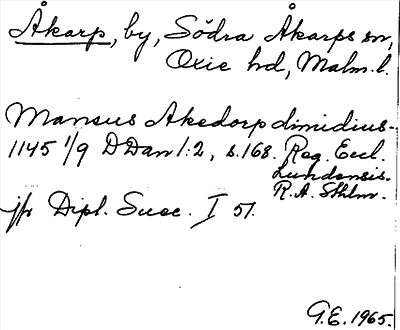 Åkarp, by, Södra Åkarps sn,
Oxie hd, Malm. l.
Mansus Akedorp dimidius.
1145 1/9 D Dan 1:2, s. 168. Reg. Eccl.
Lundensis.
R.A. Sthlm.
jfr Dipl. Suec. I 51.
G.E. 1965.